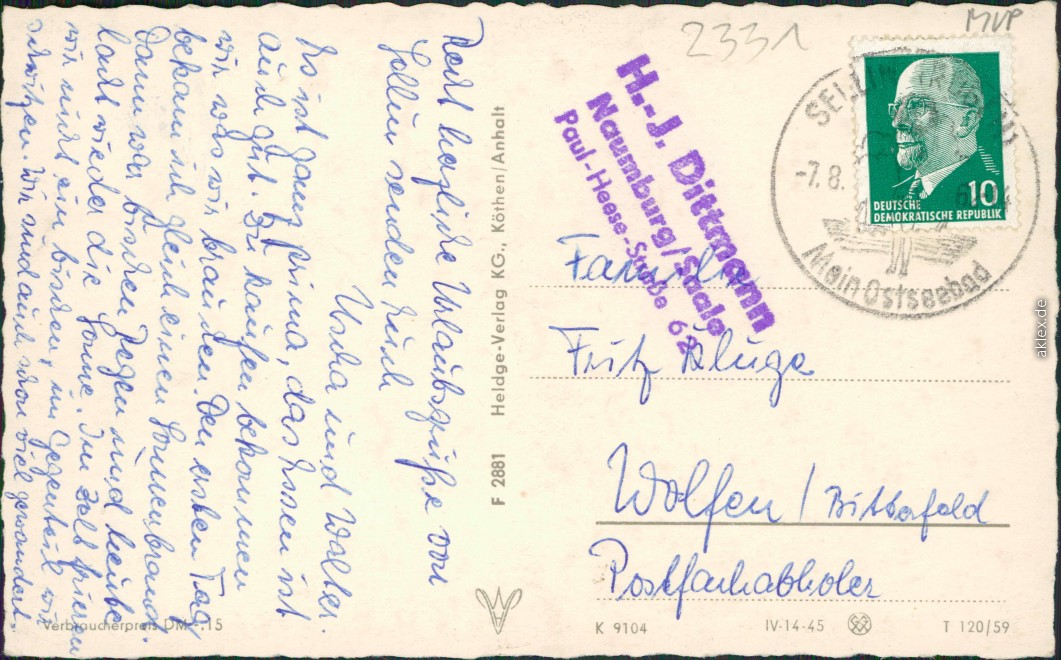 Recht herzliche Urlaubsgrüße von
Sellin senden Euch
Ursha und Walter.
Es ist ganz prima, das Essen ist
auch gut. Zu kaufen bekommen
wir was wir brauchen. Den ersten Tag
bekam ich gleich einen Sonnenbrand.
Dann war bischen Regen und heute
lacht wieder die Sonne. Im Zelt frieren
wir nicht ein bischen, im Gegenteil wir
schwitzen. Wir sind auch schon viel gewandert.
Verbraucherpreis DM -.15
F 2881 Heldge-Verlag KG., Köthen/Anhalt
2331
MVP
H.-J. Dittmann
Naumburg/Saale
Paul-Heese-Straße 62
SELLIN
-7.8.
Mein Ostseebad
10
DEUTSCHE
DEMOKRATISCHE REPUBLIK
Familie
Fritz Kluge
Wolfen / Bitterfeld
Postfachabholer
K 9104 IV-14-45 T 120/59
aklex.de